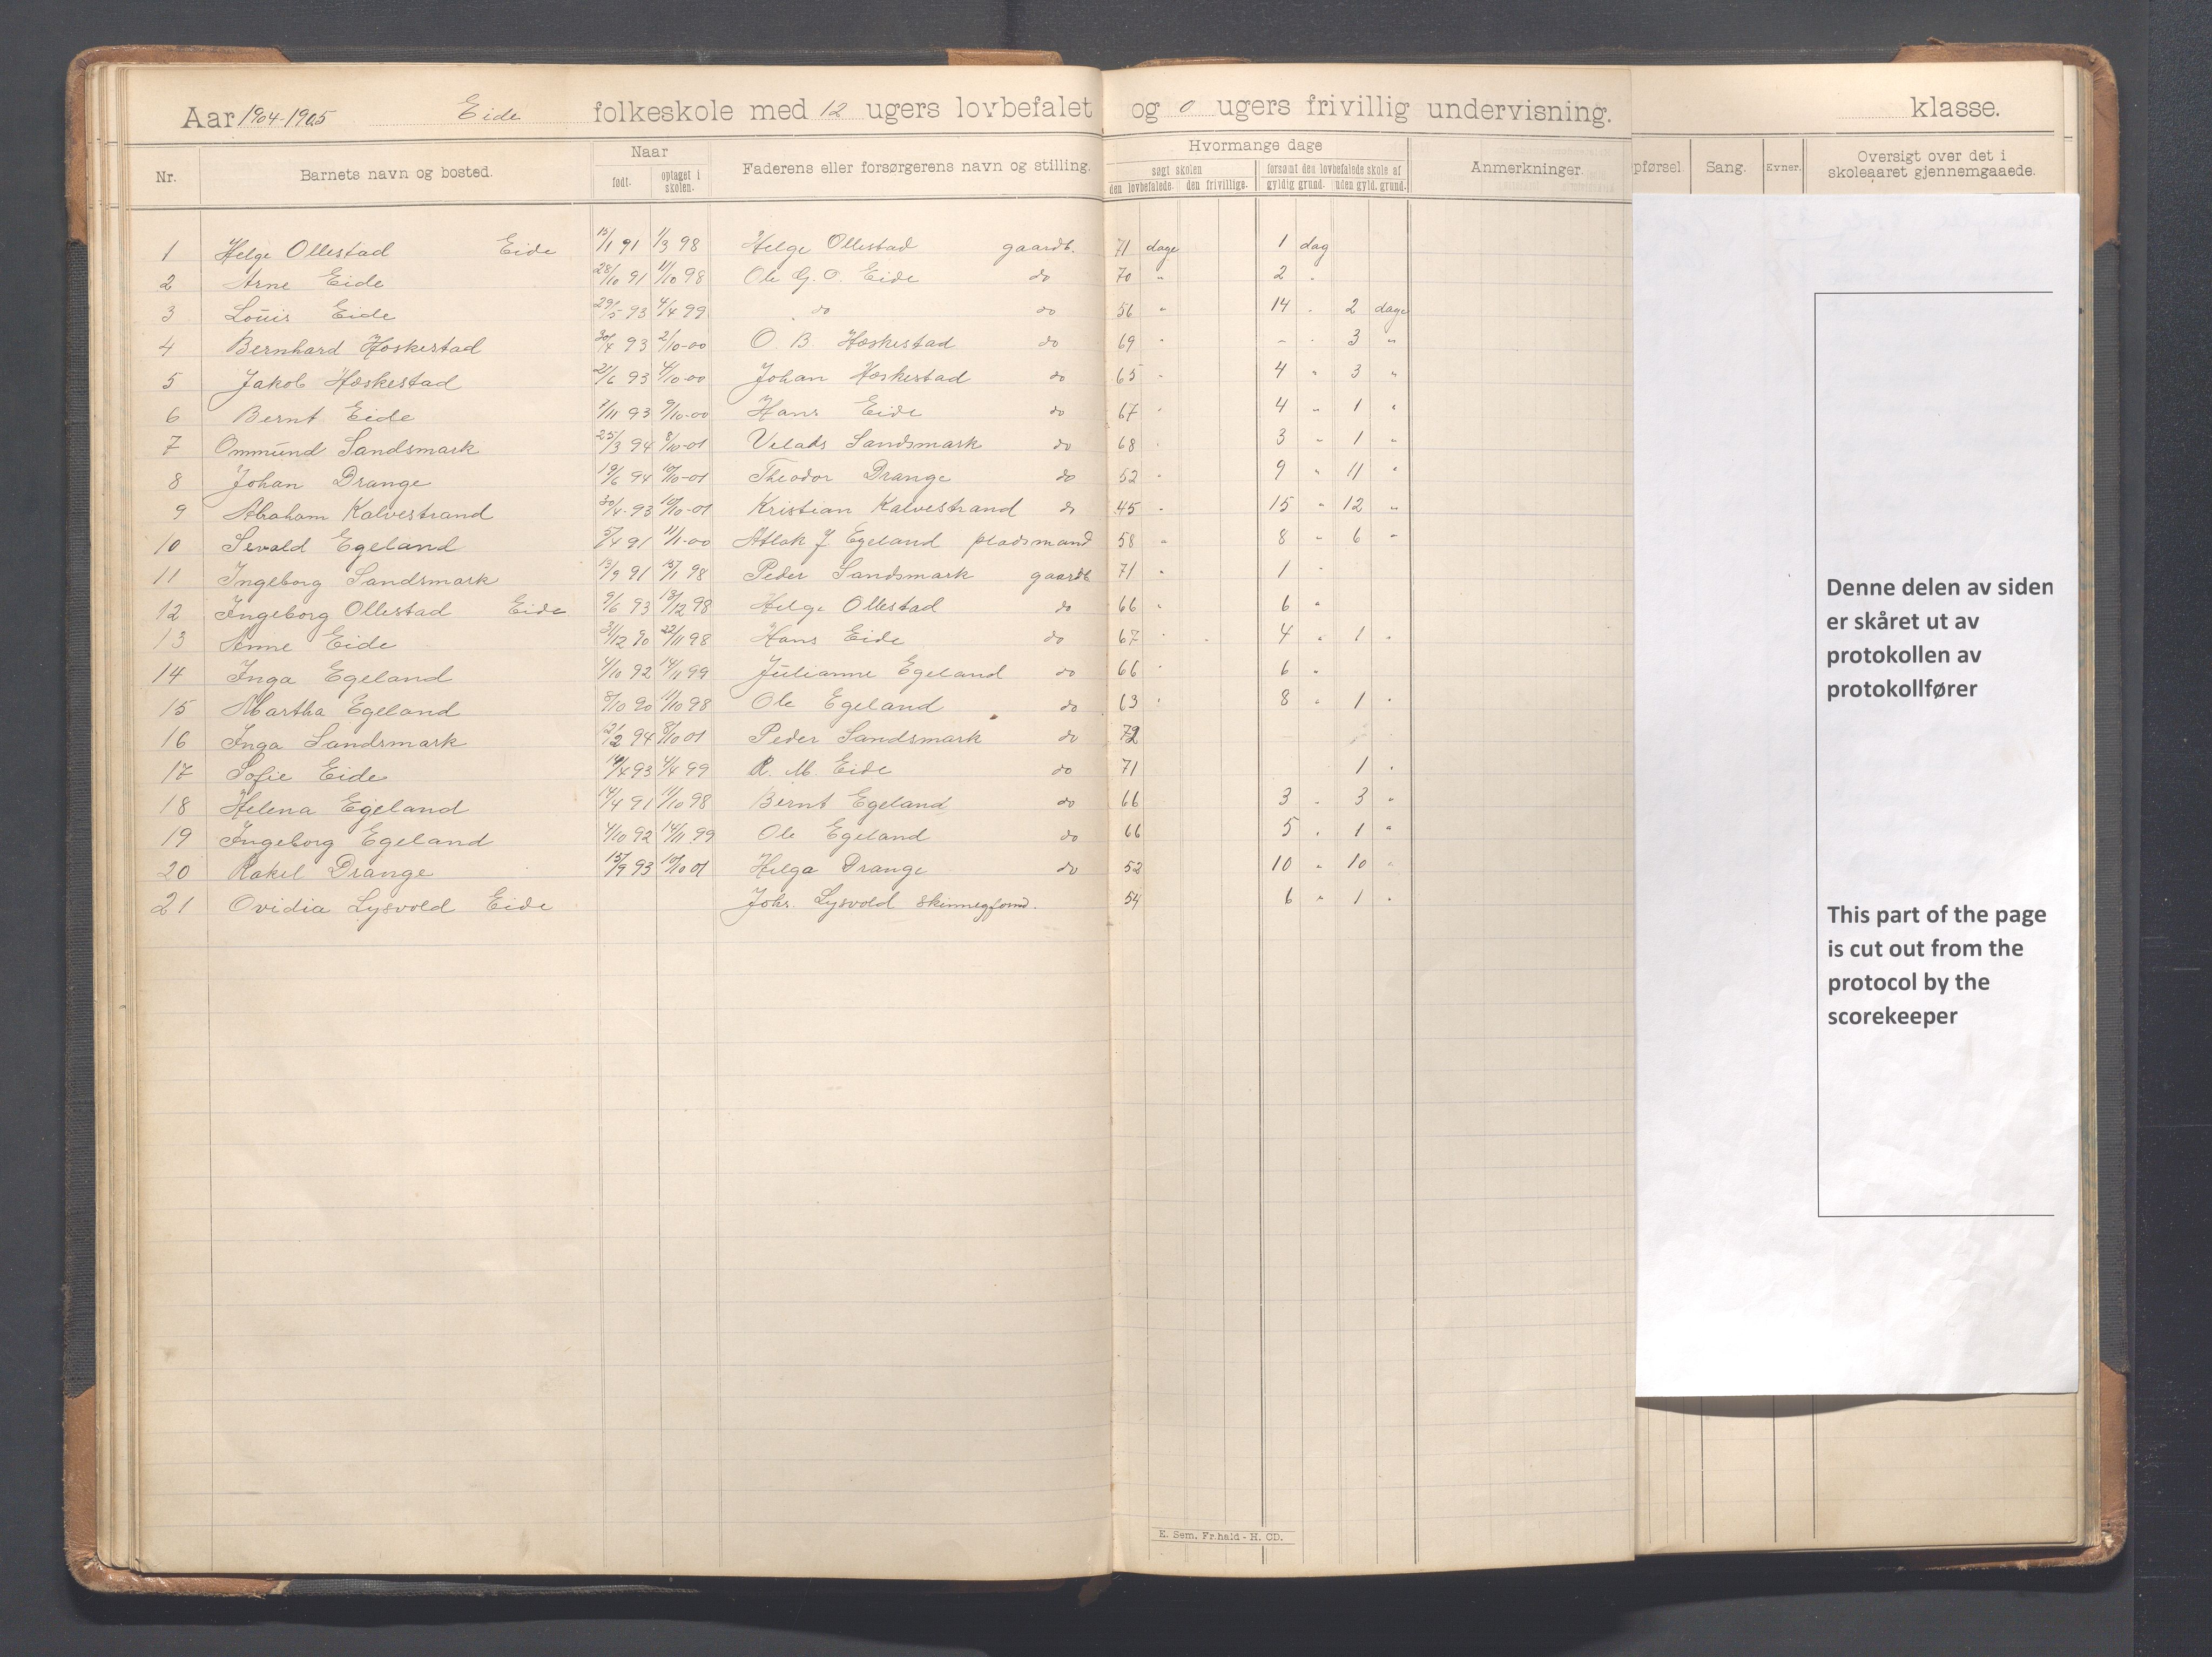 Aar 1904-1905 Eide folkeskole med 12 ugers lovbefalet og 0 ugers frivillig undervisning. klasse.
Nr. Barnets navn og bosted. Naar født. optaget i skolen. Faderens eller forsørgerens navn og stilling. Hvormange dage søgt skolen den lovbefalede. den frivillige. forsømt den lovbefalede skole af gyldig grund. uden gyld. grund. Anmerkninger. pførsel Sang. Evner. Oversigt over det i skoleaaret gjennemgaaede.
1 Helge Ollestad Eide 13/1 91 1/3 98 Helge Ollestad gaardb. 71 dage 1 dag
2 Arne Eide 28/10 91 11/10 98 Ole G. O. Eide do 70 " 2 "
3 Louis Eide 29/5 93 4/4 99 do do 56 " 14 " 2 dage
4 Bernhard Hæskestad 30/4 93 2/10-00 O. B. Hæskestad do 69 " - " 3 "
5 Jakob Hæskestad 21/6 93 4/10-00 Johan Hæskestad do 65 " 4 " 3 "
6 Bernt Eide 1/11 93 9/10-00 Hans Eide do 67 " 4 " 1 "
7 Ommund Sandsmark 25/3 94 8/10-01 Velads Sandsmark do 68 " 3 " 1 "
8 Johan Drange 19/6 94 10/10-01 Theodor Drange do 52 " 9 " 11 "
9 Abraham Kalvestrand 30/4-93 10/10-01 Kristian Kalvestrand do 45 " 15 " 12 "
10 Sevald Egeland 5/4 91 11/1-00 Atlak J. Egeland pladsmand 58 " 8 " 6 "
11 Ingeborg Sandsmark 13/9 91 15/1 98 Peder Sandsmark gaardb 71 " 1 "
12 Ingeborg Ollestad Eide 9/6 93 13/12 98 Helge Ollestad do 66 " 6 "
13 Anne Eide 31/12 90 22/11 98 Hans Eide do 67 " 4 " 1 "
14 Inga Egeland 4/10 92 14/11 99 Julianne Egeland do 66 " 6 "
15 Martha Egeland 8/10 90 11/10 98 Ole Egeland do 63 " 8 " 1 "
16 Inga Sandsmark 21/2 94 8/10 01 Peder Sandsmark do 72
17 Sofie Eide 14/4 93 4/4 99 R. M. Eide do 71 1 "
18 Helena Egeland 14/4 91 11/10 98 Bernt Egeland do 66 3 " 3 "
19 Ingeborg Egeland 4/10 92 14/11 99 Ole Egeland do 66 5 " 1 "
20 Rakel Drange 15/9 93 10/10 01 Helga Drange do 52 10 " 10 "
21 Ovidia Lysvold Eide Johs. Lysvold 54 6 " 1 "
Denne delen av siden
er skåret ut av
protokollen av
protokollfører
This part of the page
is cut out from the
protocol by the
scorekeeper
E. Sem, Fr.hald - H. CD.